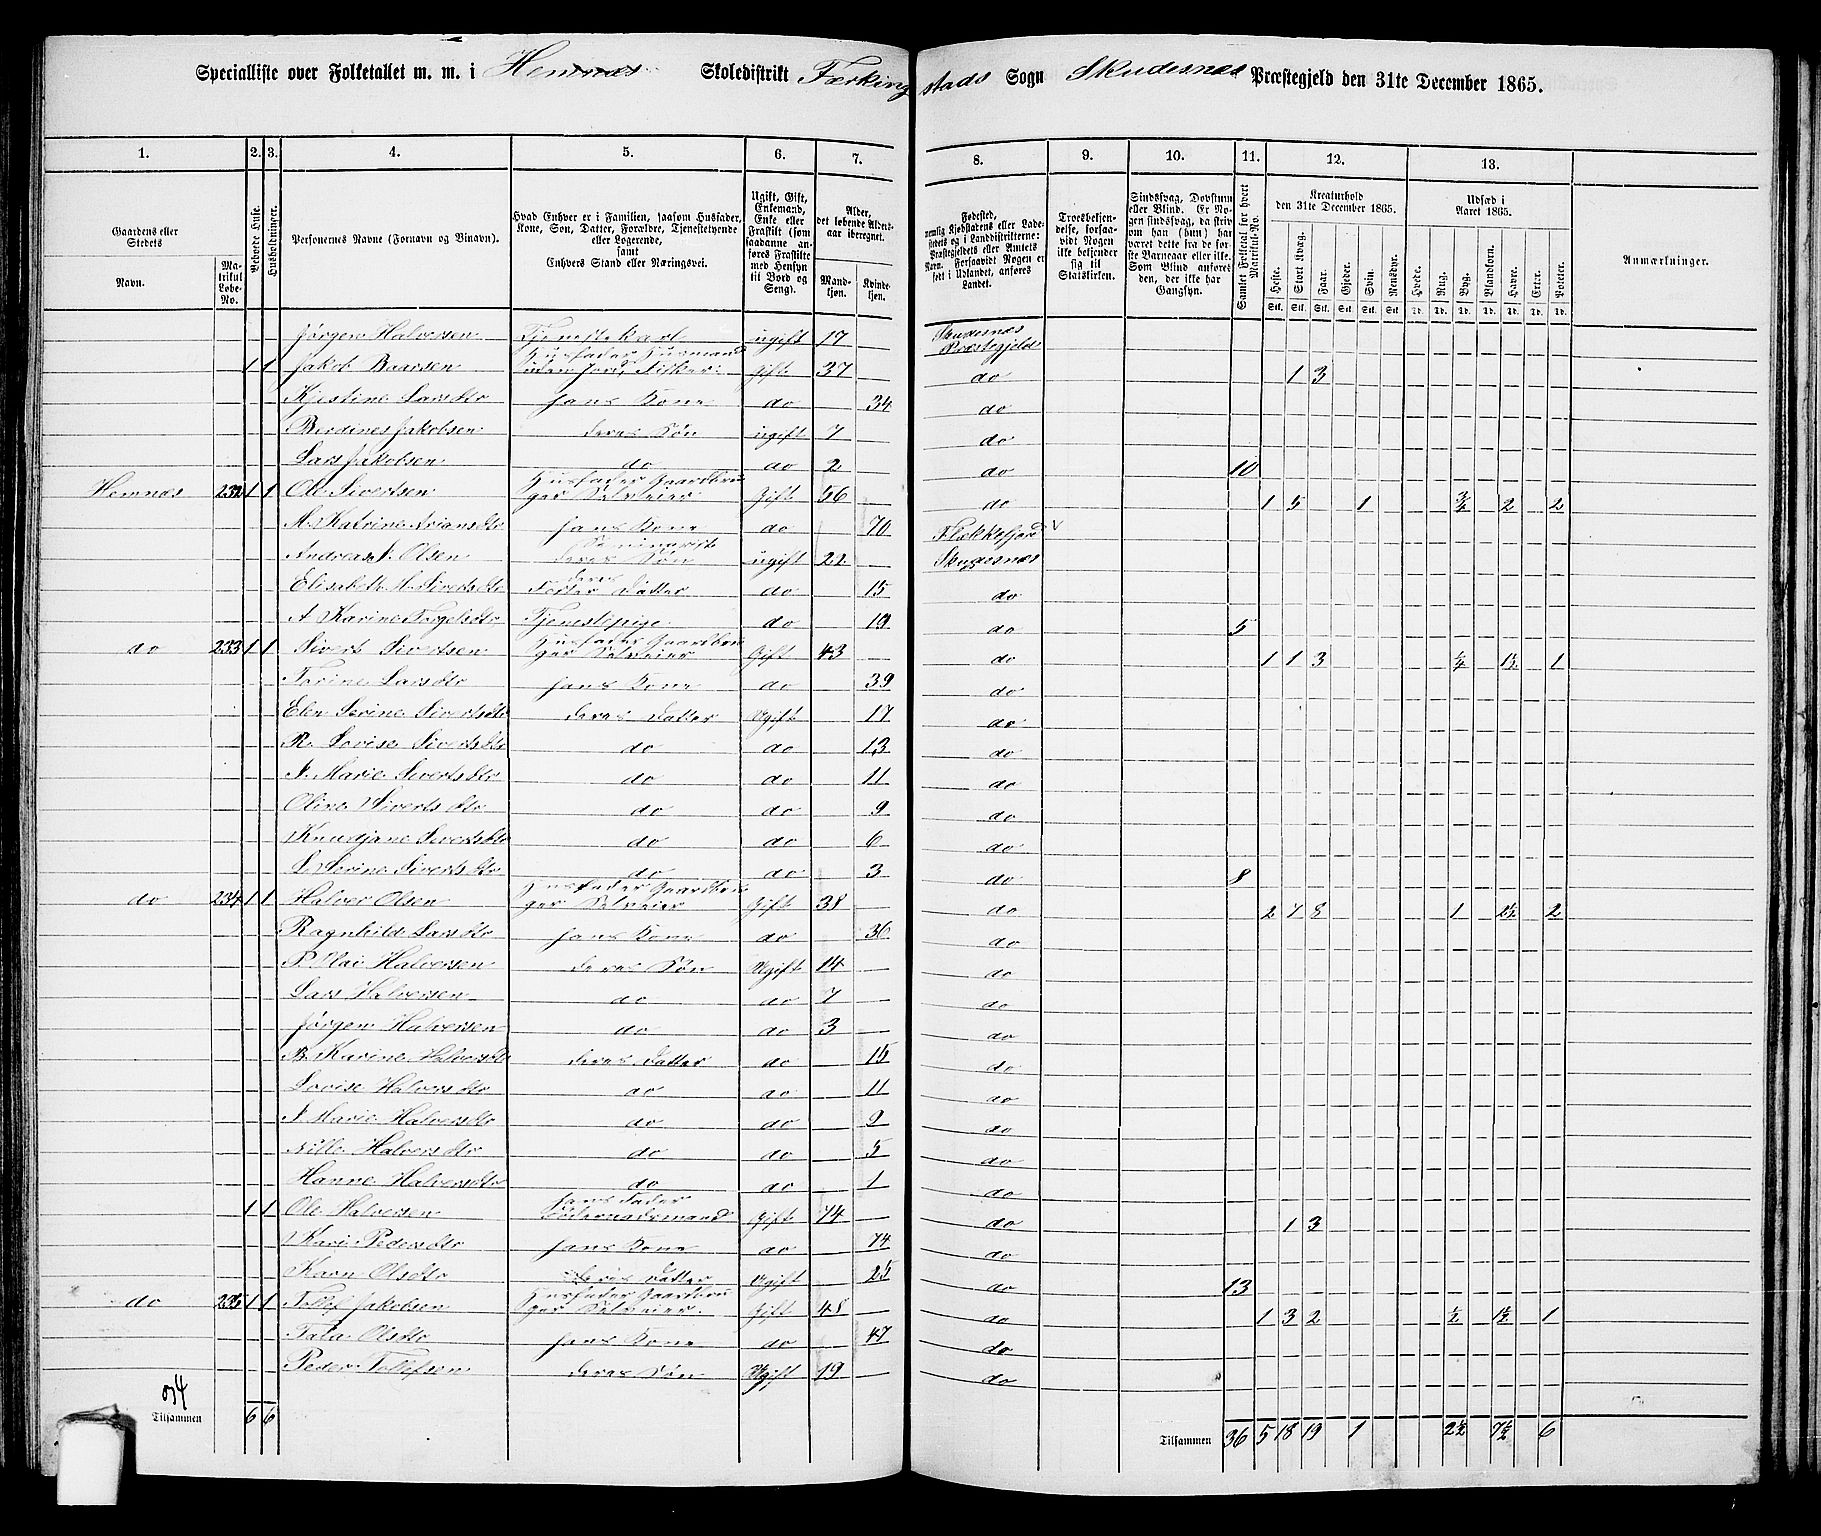 Specialliste over Folketallet m. m. i Hemnæs Skoledistrikt Færkingstads Sogn Skudesnæs Præstegjeld den 31te December 1865.
1. 2. 3. 4. 5. 6. 7. 8. 9. 10. 11. 12. 13.
Gaardens eller Stedets
Navn. Matrikul Løbe-No.
Beboede Huse.
Husholdninger.
Personernes Navne (Fornavn og Vinavn).
Hvad Enhver er i Familien, saasom Husfader, Kone, Søn, Datter, Forældre, Tjenestetyende eller Logerende, samt Enhvers Stand eller Næringsvei.
Ugift, Gift, Enkemand, Enke eller Fraskilt (som saadanne anføres Fraskilte med Hensyn til Bord og Seng).
Alder, det løbende Aldersaar iberegnet.
Mandkjøn. Kvindekjøn.
Fødested,
Troesbekjendelse, forsaavidt Nogen ikke bekjender sig til Statskirken.
Sindssvag, Døvstum eller Blind. Er Nogen sindssvag, da skrives om han (hun) har været dette fra de første Barneaar eller ikke. Som Blind anføres den, der ikke har Gangsyn.
Samlet Folketal for hvert Matrikul-No.
Kreaturhold den 31te December 1865.
Heste. Stort Kvæg. Faar. Gjeder. Svin. Rensdyr.
Udsæd i Aaret 1865.
Hvede. Rug. Byg. Blandkorn. Havre. Erter. Poteter.
Anmærkninger.
Jørgen Halversen Tjenstekarl ugift 17 Skudesnæs Præstegjeld
1 1 Jakob Baarsen Husfader Husmand uden Jord, Fisker Gift 37 do 1 3
Kjestine Larsdtr hans Kone do 34 do
Berdines Jakobsen deres Søn ugift 7 do
Lars Jakobsen do do 2 do 10
Hemnæs 232 1 1 Ole Sivertsen Husfader Gaardbruger Selveier Gift 56 do 1 5 1 3/4 2 2
M. Katrine Ariansdtr hans Kone do 70 Flekkefjord
Andreas S. Olsen Seminarist deres Søn ugift 22 Skudesnæs
Elisabeth M. Sivertsdtr deres Foster Datter do 15 do
A Karine Torgelsdtr Tjenestepige do 19 do 5
do 233 1 1 Sivert Sivertsen Husfader Gaardbruger Selveier Gift 43 do 1 1 3 1/4 1½ 1
Torine Larsdtr hans Kone do 39 do
Elen Serine Sivertsdtr deres Datter Ugift 17 do
R. Lovise Sivertsdtr do do 13 do
S. Marie Sivertsdtr do do 11 do
Oline Sivertsdtr do do 9 do
Knudjane Sivertsdtr do do 6 do
S. Serine Sivertsdtr do do 3 do 8
do 234 1 1 Halver Olsen Husfader Gaardbruger Selveier Gift 38 do 2 7 8 1 2½ 2
Ragnhild Larsdtr hans Kone do 36 do
P. Olai Halversen deres Søn Ugift 14 do
Lars Halversen do do 7 do
Jørgen Halversen do do 3 do
B. Karine Halversdtr deres Datter do 15 do
Lovise Halversdtr do do 11 do
S. Marie Halversdtr do do 9 do
Nille Halversdtr do do 5 do
Hanne Halversdtr do do 1 do
1 1 Ole Halversen hans Fader Føderaadsmand Gift 74 do 1 3
Kari Pedersdtr hans Kone do 74 do
Karn Olsdtr deres Datter Ugift 25 do 13
do 235 1 1 Tollef Jakobsen Husfader Gaardbruger Selveier Gift 48 do 1 3 2 ½ 1½ 1
Tala Olsdtr hans Kone do 47 do
Peder Tollefsen deres Søn Ugift 19 do
Tilsammen 6 6
Tilsammen 36 5 18 19 1 2½ 7½ 6